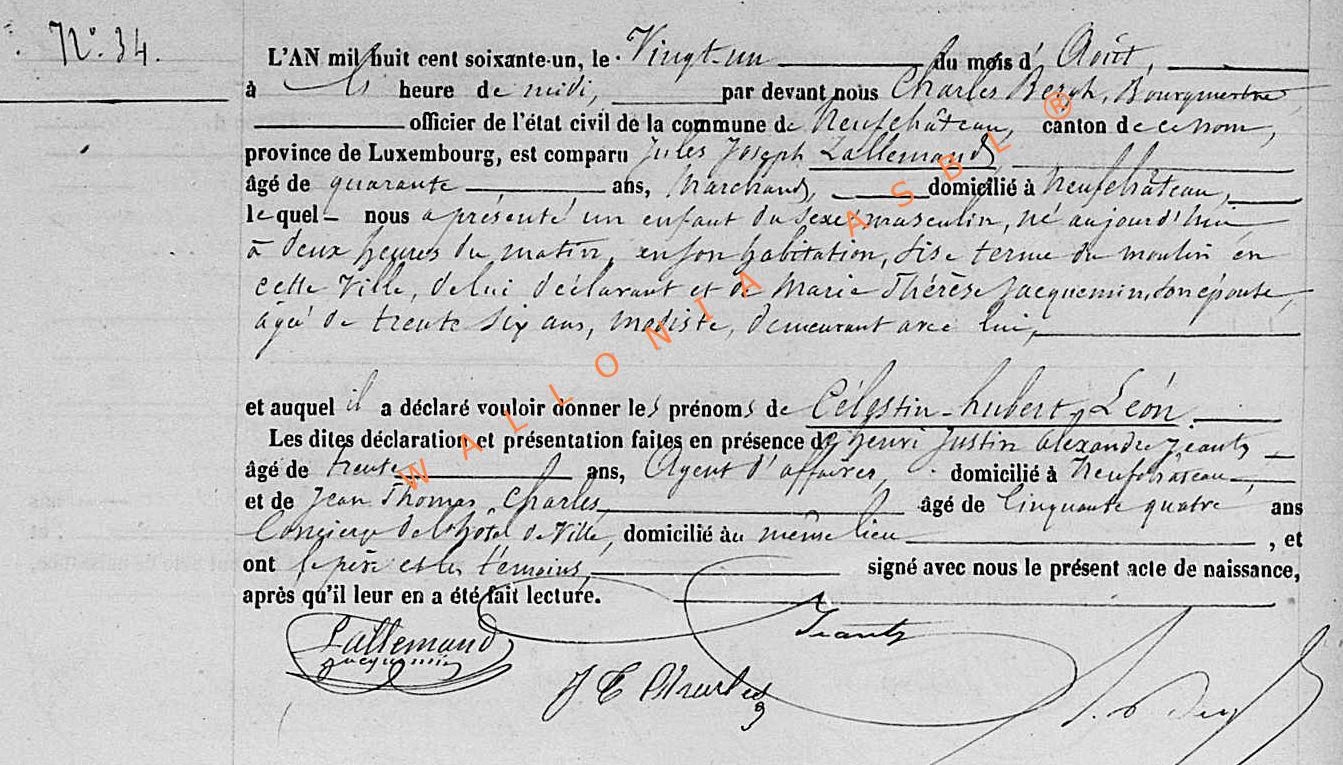 N°. 34.
L'AN mil huit cent soixante-un, le Vingt-un du mois d'Août,
à heure de midi, par devant nous Charles Bourgmestre
officier de l'état civil de la commune de Neufchâteau, canton de ce nom,
province de Luxembourg, est comparu Jules Joseph Lallemand
âgé de quarante ans, Marchand, domicilié à Neufchâteau,
lequel nous a présenté un enfant du sexe masculin, né aujourd'hui
à deux heures du matin, en son habitation, sise terme du moulin en
cette Ville, de lui déclarant et de Marie Thérèse Jacquemin, son épouse,
âgée de trente six ans, modiste, demeurant avec lui,
et auquel il a déclaré vouloir donner les prénoms de Célestin-hubert-Léon.
Les dites déclaration et présentation faites en présence de henri Justin alexandre Jeanty
âgé de trente ans, Agent d'affaires, domicilié à Neufchâteau,
et de Jean Thomas Charles, âgé de Cinquante quatre ans
Concierge de l'hotel de Ville, domicilié au même lieu, et
ont le père et les témoins, signé avec nous le présent acte de naissance,
après qu'il leur en a été fait lecture.
Lallemand Jeanty
Jacquemin
WALLONIA ASBL ®